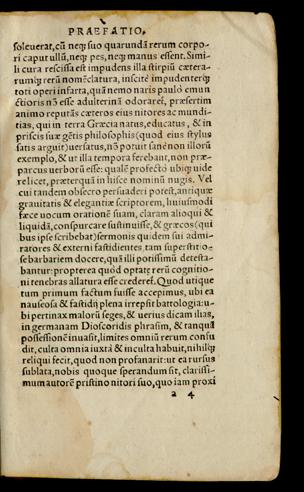 PRAEFATIO.
soleuerat, cũ neq; suo quarundã rerum corpo-
ri caput ullũ, neq; pes, neq; manus essent. Simi-
li cura rescissa est impudens illa stirpiũ cætera-
rumq; rerũ nomẽclatura, inscitè impudenterq;
toti operi infarta, quã nemo naris pauló emun
ctioris nõ esse adulterinã odoraret, præsertim
animo reputãs cæteros eius nitores ac mundi-
tias, qui in terra Græcia natus, educatus, & in
priscis suæ gẽtis philosophis (quod eius stylus
satis arguit) uersatus, nõ potuit sanè non illorũ
exemplo, & ut illa tempora ferebant, non præ-
parcus uerborũ esse: qualẽ profectò ubiq; uide
re licet, præterquã in hisce nominũ nugis. Vel
cui tandem obsecro persuaderi potest, antiquæ
grauitatis & elegantiæ scriptorem, huiusmodi
fæce uocum orationẽ suam, claram alioqui &
liquidã, conspurcare sustinuisse, & græcos (qui
bus ipse scribebat) sermonis quidem sui admi-
ratores & externi fastidientes tam superstitio-
se barbariem docere, quã illi potissimũ detesta-
bantur: propterea quòd optatę rerũ cognitio-
ni tenebras allatura esse crederet. Quod utique
tum primum factum fuisse accepimus, ubi ea
nauseosa & fastidij plena irrepsit battologia: u-
bi pertinax malorũ seges, & uerius dicam ilias,
in germanam Dioscoridis phrasim, & tanquã
possessionẽ inuasit, limites omniũ rerum consu
dit, culta omnia iuxtà & inculta habuit, nihilq;
reliqui fecit, quod non profanarit: ut ea rursus
sublata, nobis quoque sperandum sit, clarissi-
mum autorẽ pristino nitori suo, quo iam proxi
a 4